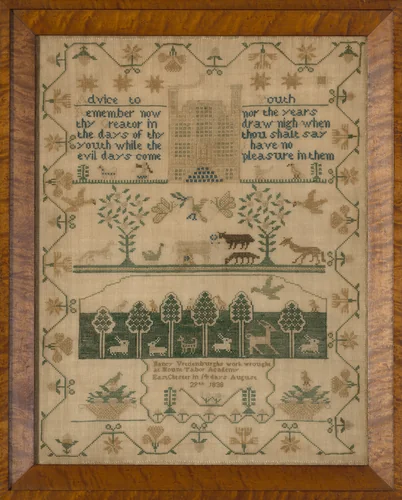 dvice to outh
emember now
thy reator in
the days of thy
youth while the
evil days come
nor the years
draw nigh when
thou shalt say
have no
pleasure in them
Nancy work wrought
at Mount Tabor
August
29th 1838